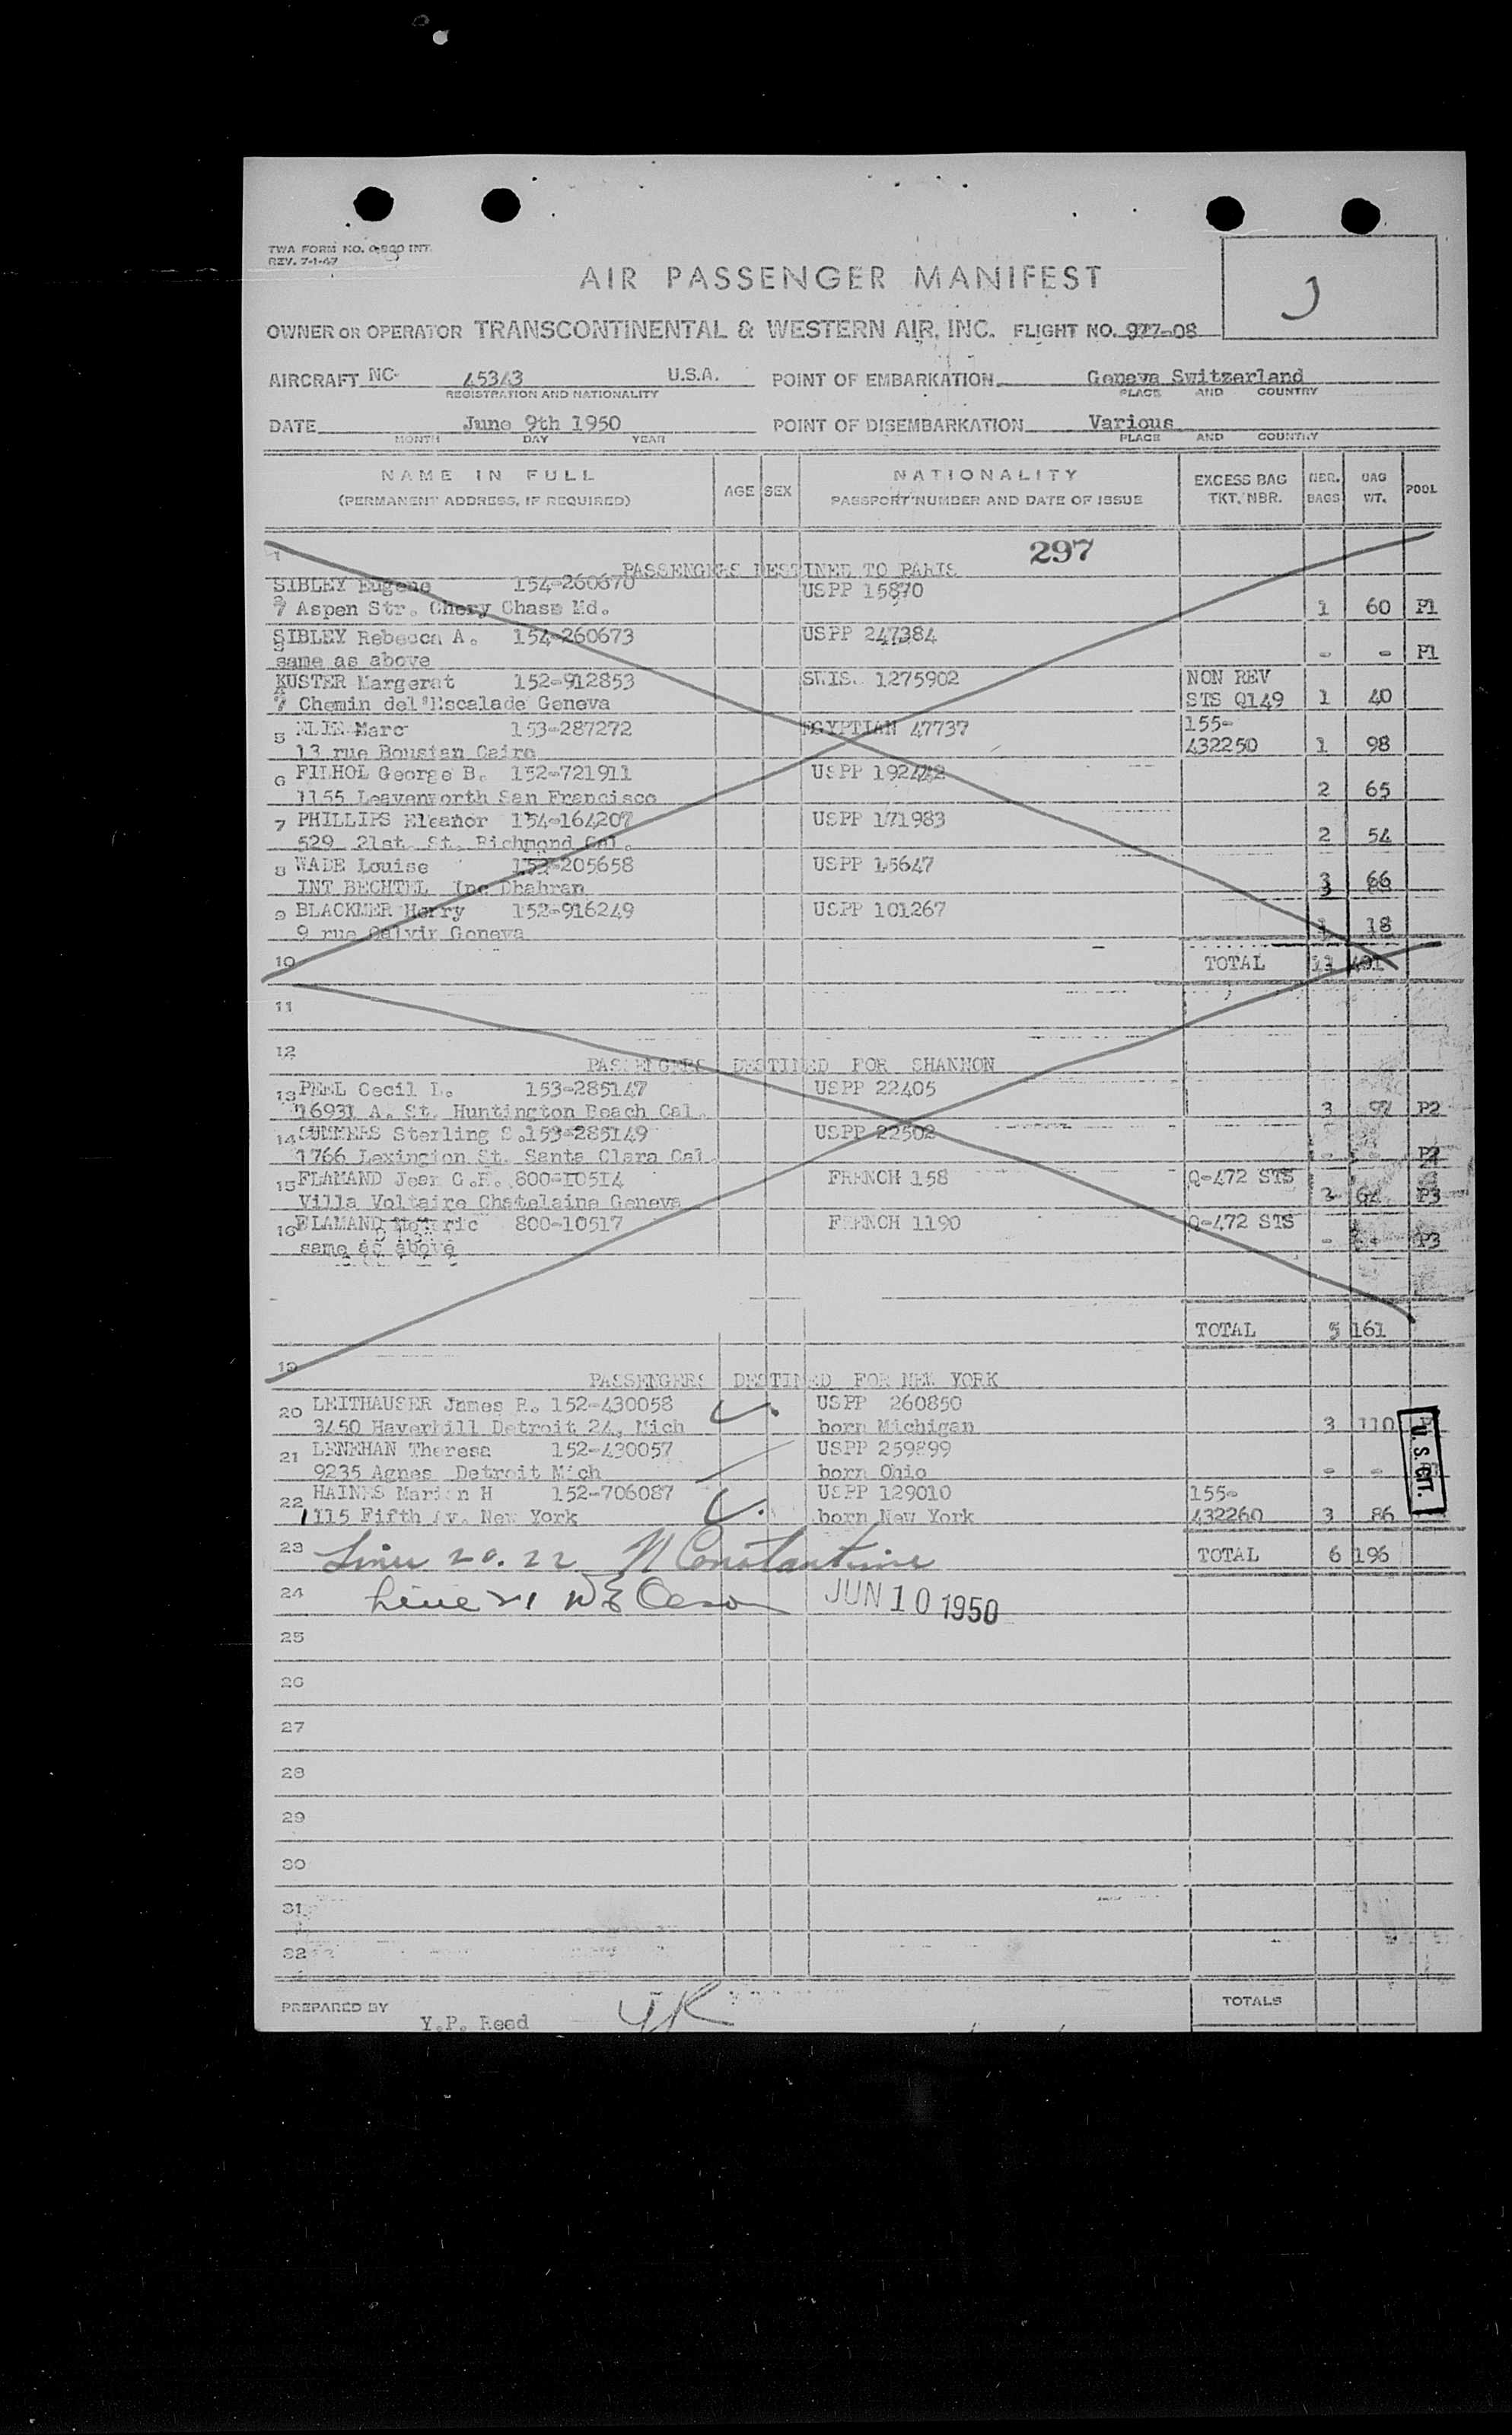 TWA FORM NO. INT.
REV. 7-1-47
AIR PASSENGER MANIFEST
OWNER OR OPERATOR TRANSCONTINENTAL & WESTERN AIR, INC. FLIGHT NO. 977-08
AIRCRAFT NC- 45343 U.S.A. POINT OF EMBARKATION Geneva Switzerland
REGISTRATION AND NATIONALITY PLACE AND COUNTRY
DATE June 9th 1950 POINT OF DISEMBARKATION Various
MONTH DAY YEAR PLACE AND COUNTRY
NAME IN FULL (PERMANENT ADDRESS, IF REQUIRED) AGE SEX NATIONALITY PASSPORT NUMBER AND DATE OF ISSUE EXCESS BAG TKT. NBR. NBR. BAGS BAG WT. POOL
1 297
PASSENGERS DESTINED TO PARIS
SIBLEY Eugene 154-260670 USPP 15870
7 Aspen Str. Chevy Chase Md. 1 60 P1
SIBLEY Rebecca A. 154-260673 USPP 247384
same as above - - P1
KUSTER Margerat 152-912853 SWIS. 1275902 NON REV
7 Chemin del'Escalade Geneva STS Q149 1 40
5 ELIE Marc 153-287272 EGYPTIAN 47737 155-
13 rue Boustan Cairo 432250 1 98
6 FILHOL George B. 152-721911 USPP 192442
1155 Leavenworth San Francisco 2 65
7 PHILLIPS Eleanor 154-164207 USPP 171983
529 21st. St. Richmond Cal. 2 54
8 WADE Louise 153-205658 USPP 15647
INT BECHTEL Inc Dhahran 3 66
9 BLACKMER Harry 152-916249 USPP 101267
9 rue Calvin Geneva 1 18
10 TOTAL 11 401
11
12
PASSENGERS DESTINED FOR SHANNON
13 PEEL Cecil L. 153-285147 USPP 22405
16931 A. St. Huntington Beach Cal. 3 97 P2
14 SUMMERS Sterling S. 153-285149 USPP 22502
1766 Lexington St. Santa Clara Cal. - - P2
15 FLAMAND Jean G.R. 800-10514 FRENCH 158 Q-472 STS
Villa Voltaire Chatelaine Geneva 2 64 P3
16 FLAMAND 800-10517 FRENCH 1190 Q-472 STS
same as above - - P3
TOTAL 5 161
19
PASSENGERS DESTINED FOR NEW YORK
20 LEITHAUSER James R. 152-430058 USPP 260850
3450 Haverhill Detroit 24, Mich born Michigan 3 110
21 LENEHAN Theresa 152-430057 USPP 259899
9235 Agnes Detroit Mich born Ohio - -
U.S. CIT.
22 HAINES Marion H 152-706087 USPP 129010 155-
1115 Fifth Av. New York born New York 432260 3 86
23 Lines 20. 22 N Constantine TOTAL 6 196
24 Line 21 JUN 10 1950
25
26
27
28
29
30
31
32
PREPARED BY Y.P. Reed YR TOTALS